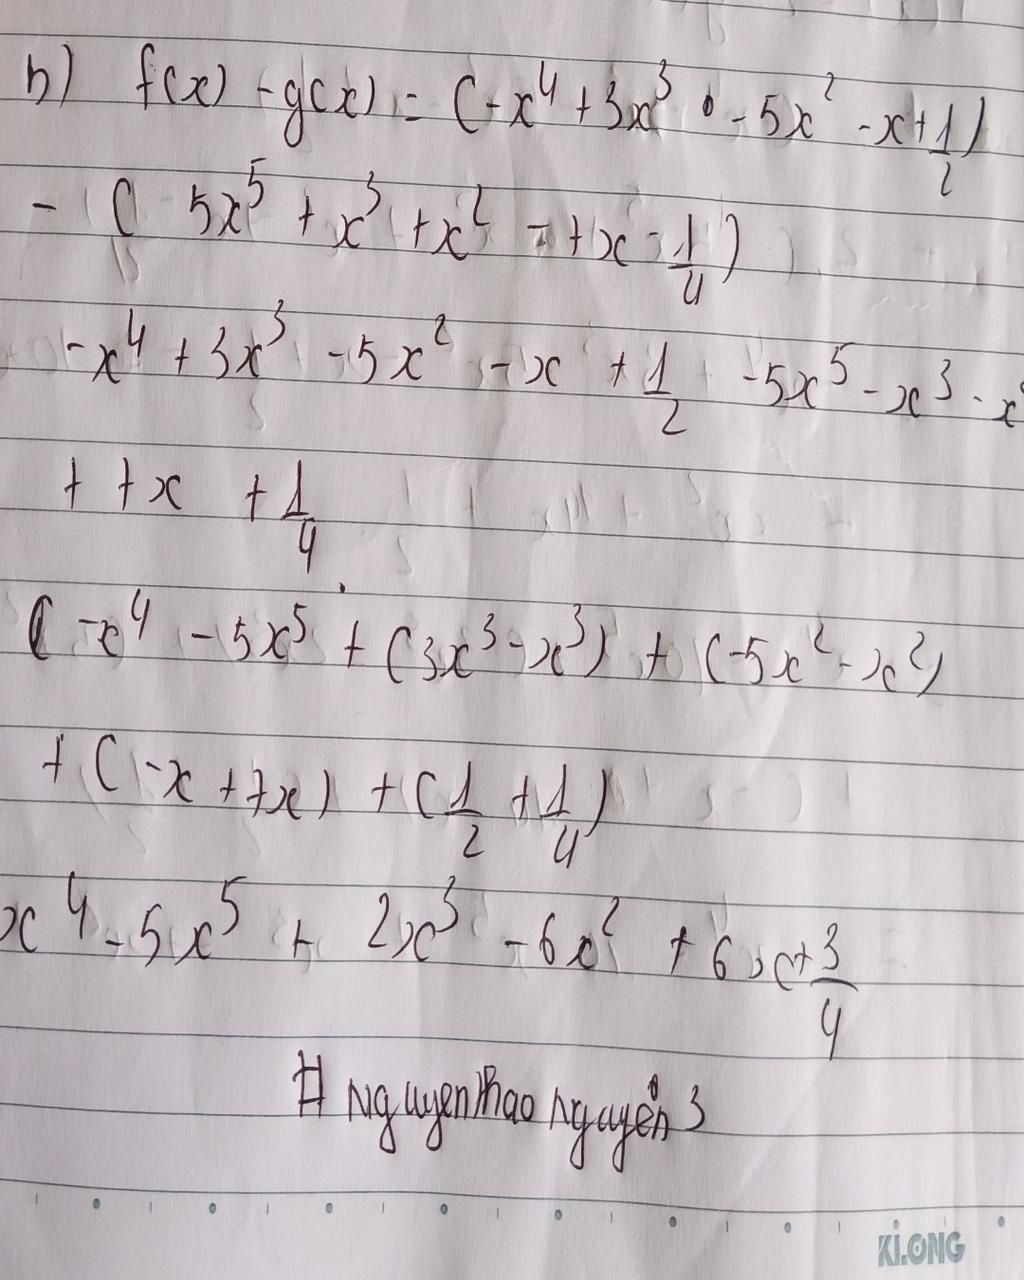 b) f(x) - g(x) = (-x⁴ + 3x³ - 5x² - x + 1/2)
- ( 5x⁵ + x³ + x² - 7x - 1/4 )
-x⁴ + 3x³ - 5x² - x + 1/2 - 5x⁵ - x³ - x²
+ 7x + 1/4
( -x⁴ - 5x⁵ + (3x³ - x³) + (-5x² - x²)
+ (-x + 7x) + (1/2 + 1/4)
x⁴ - 5x⁵ + 2x³ - 6x² + 6x + 3/4
# Nguyenthaonguyên3
Ki.ONG